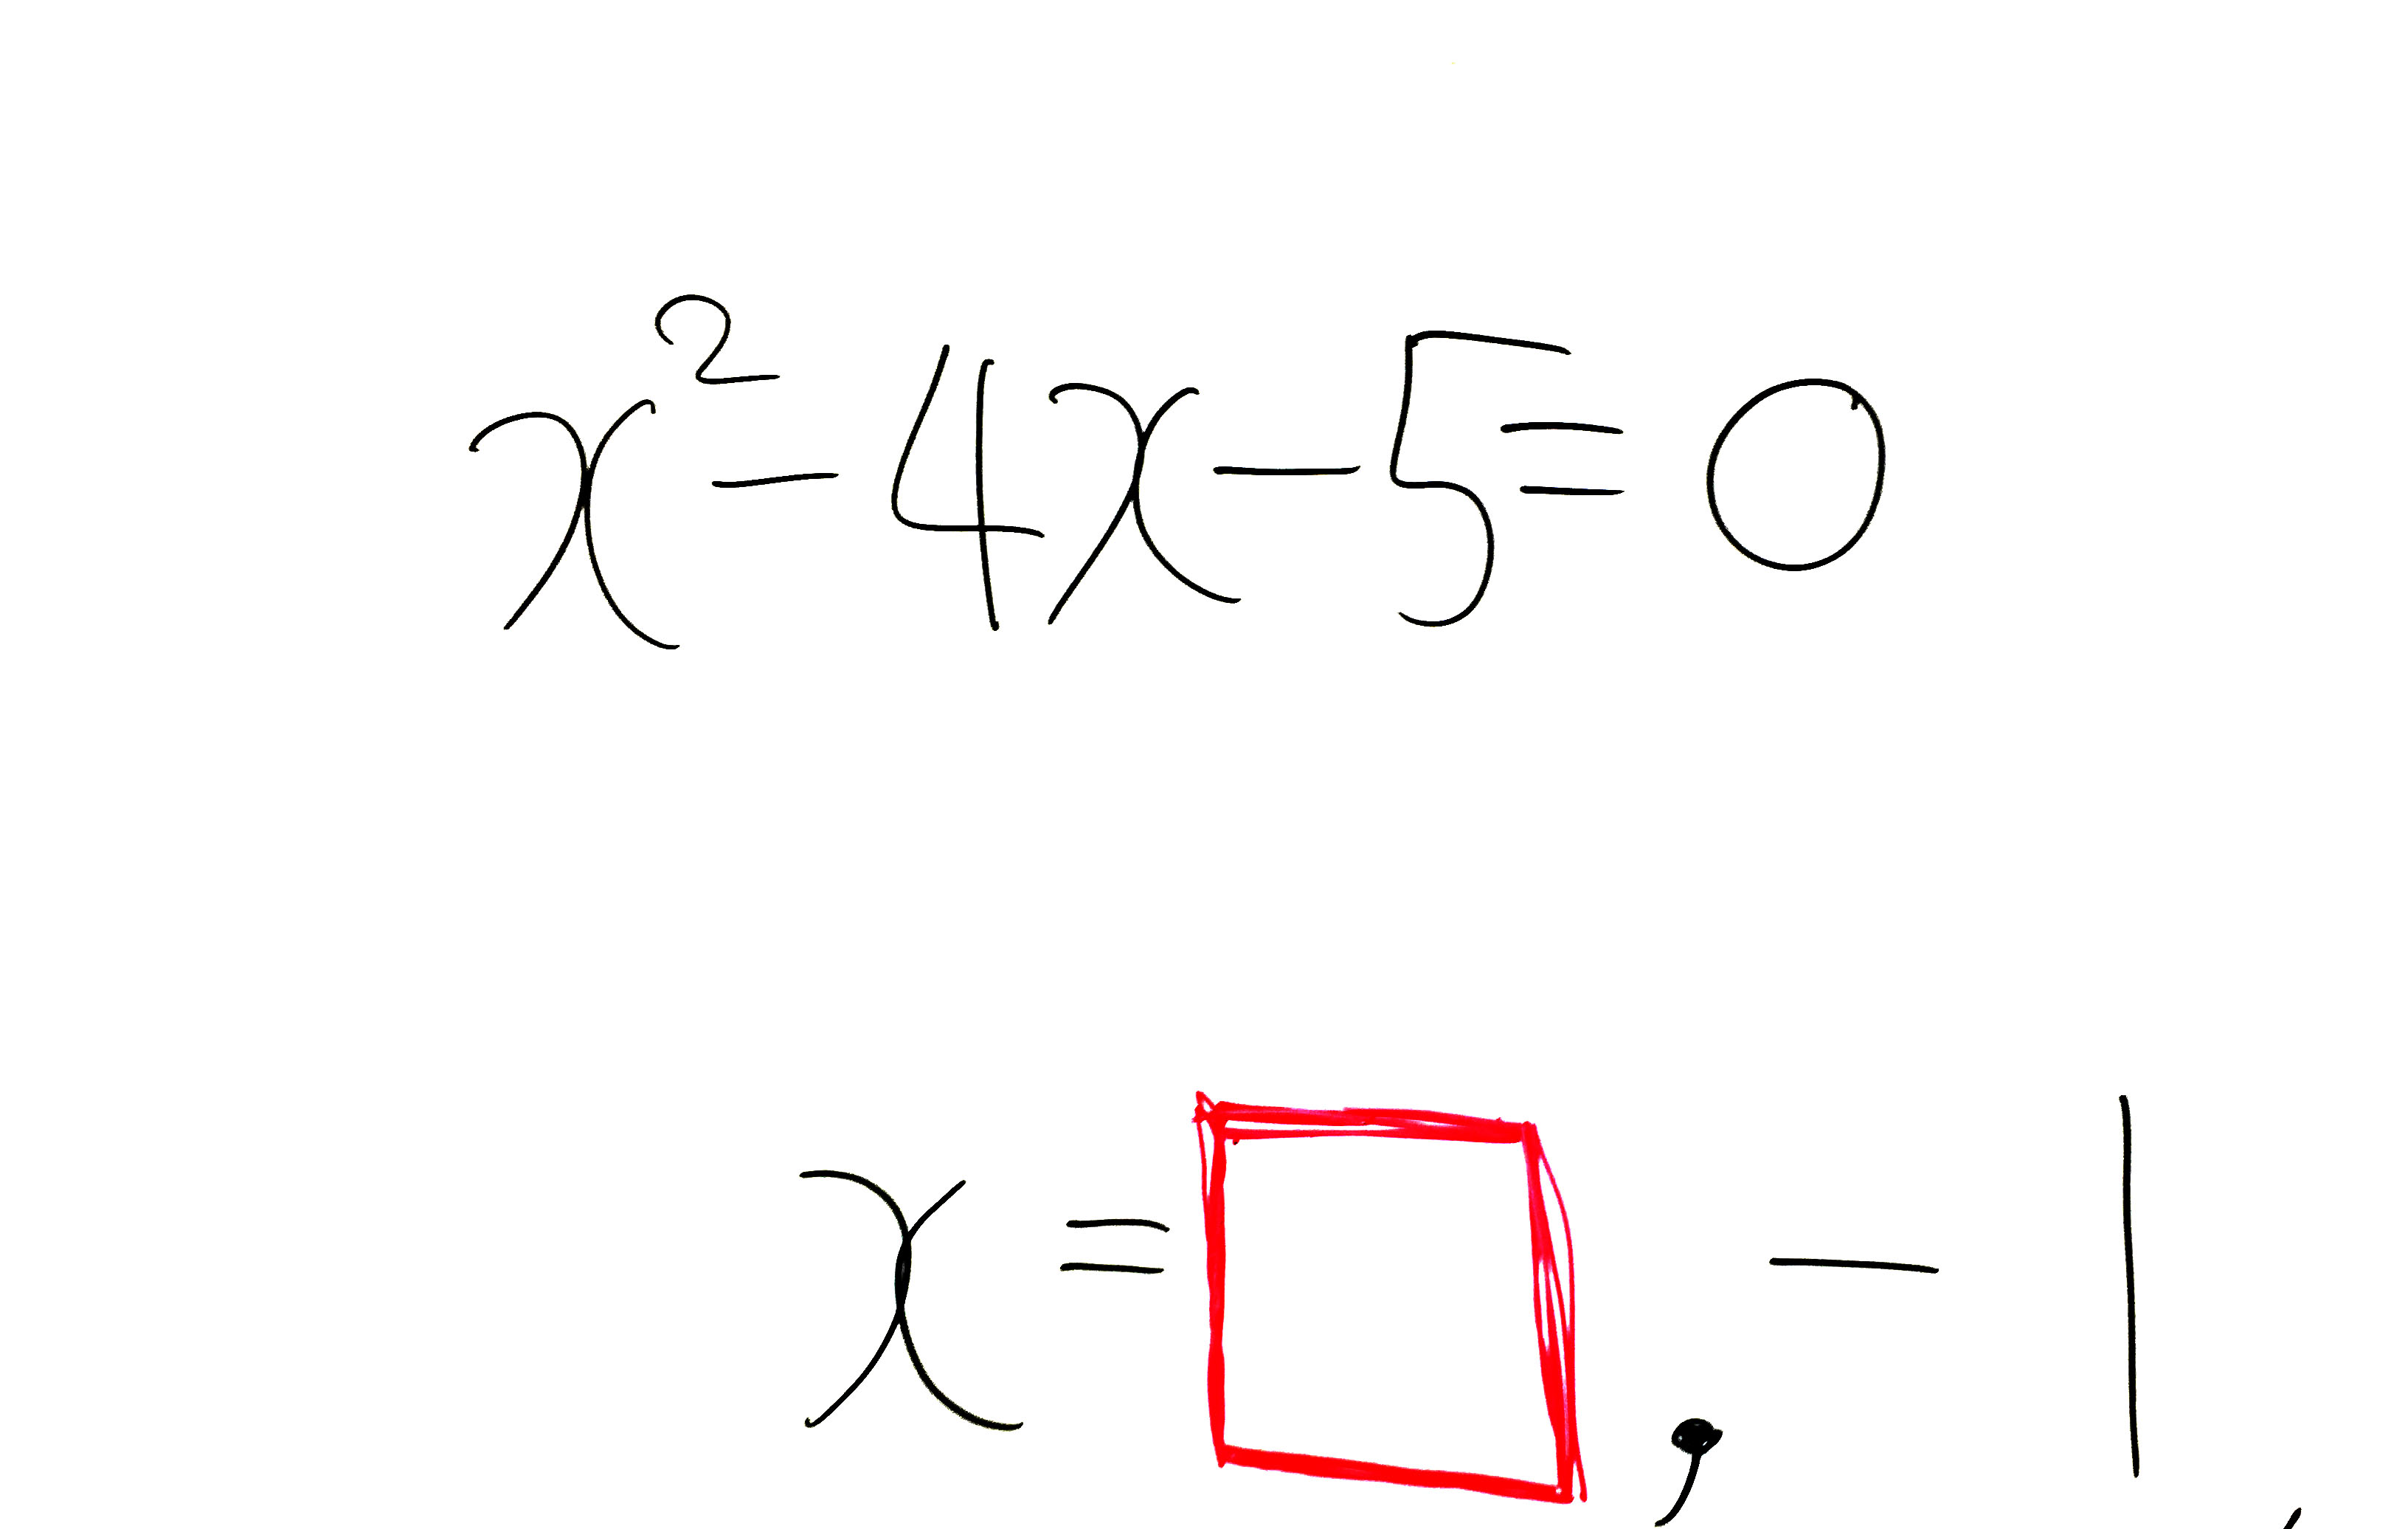 x²-4x-5=0
x=□, -1